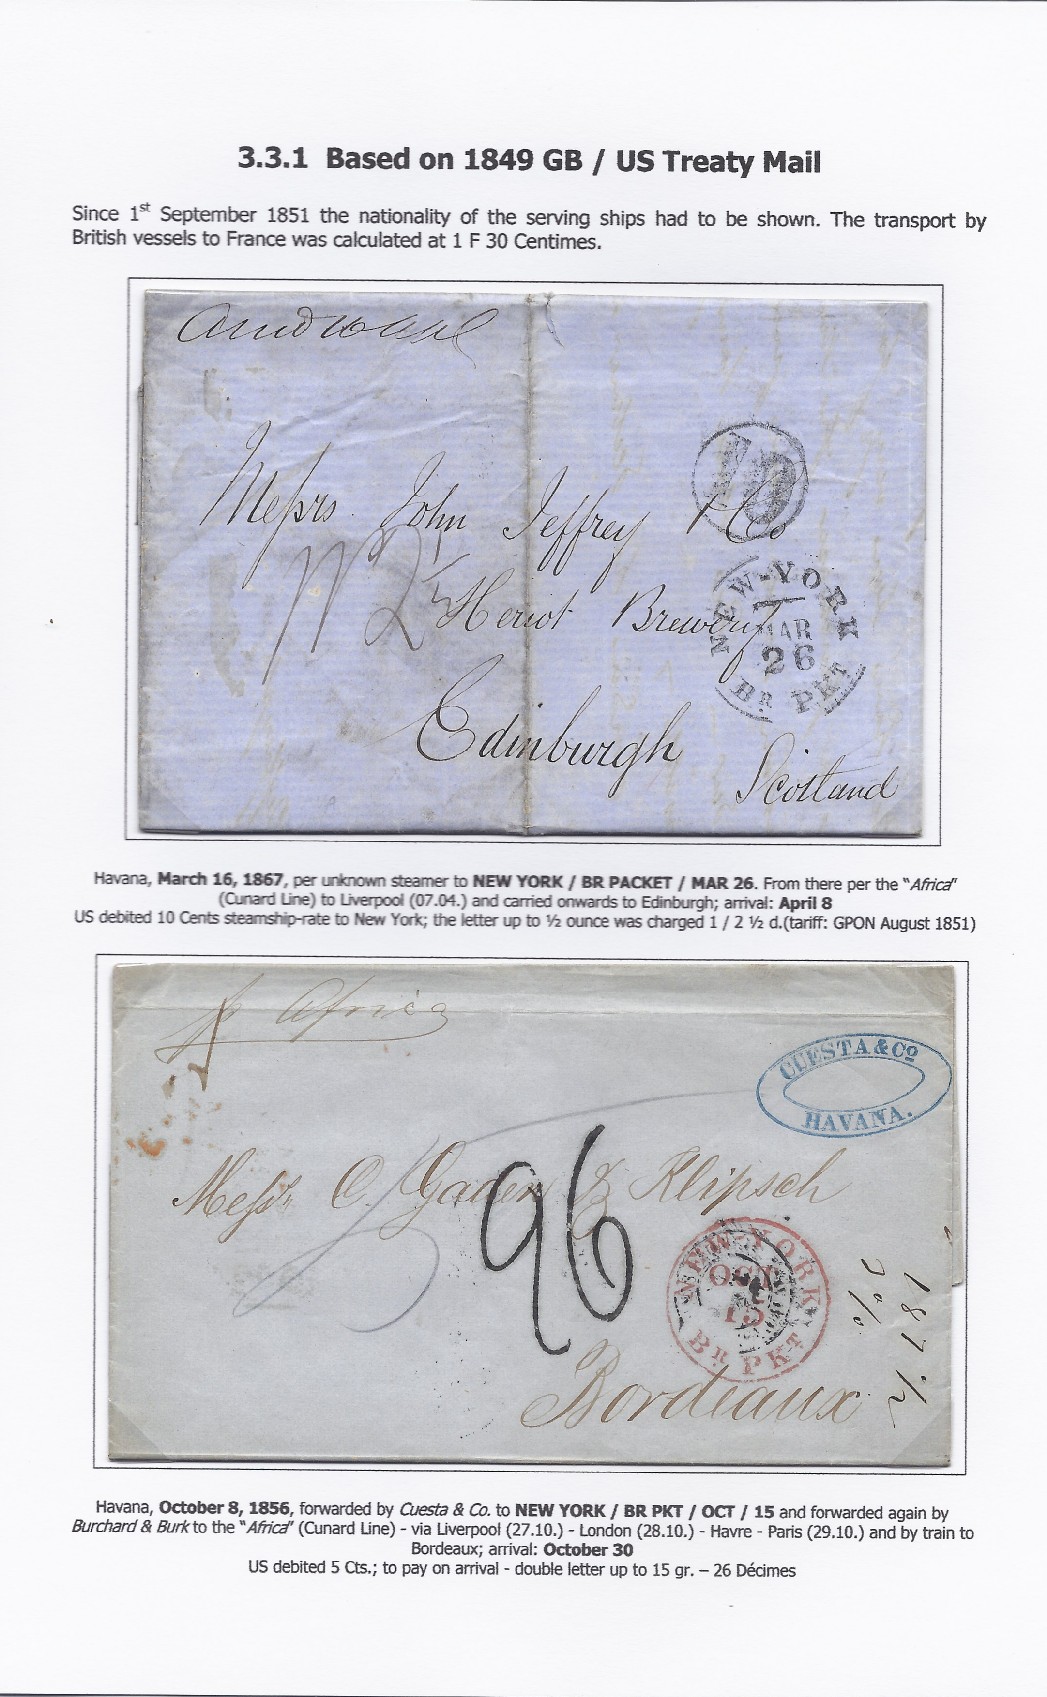 3.3.1 Based on 1849 GB / US Treaty Mail
Since 1st September 1851 the nationality of the serving ships had to be shown. The transport by
British vessels to France was calculated at 1 F 30 Centimes.
10
Messrs John Jeffrey & Co
Heriot Brewery
Edinburgh
Scotland
NEW-YORK
MAR
26
BR PKT
Havana, March 16, 1867, per unknown steamer to NEW YORK / BR PACKET / MAR 26. From there per the "Africa"
(Cunard Line) to Liverpool (07.04.) and carried onwards to Edinburgh; arrival: April 8
US debited 10 Cents steamship-rate to New York; the letter up to ½ ounce was charged 1 / 2 ½ d.(tariff: GPON August 1851)
p Africa
CUESTA & Co
HAVANA.
Messrs C. Gaden & Klipsch
26
NEW-YORK
OCT
15
BR PKT
Bordeaux
Havana, October 8, 1856, forwarded by Cuesta & Co. to NEW YORK / BR PKT / OCT / 15 and forwarded again by
Burchard & Burk to the "Africa" (Cunard Line) - via Liverpool (27.10.) - London (28.10.) - Havre - Paris (29.10.) and by train to
Bordeaux; arrival: October 30
US debited 5 Cts.; to pay on arrival - double letter up to 15 gr. – 26 Décimes